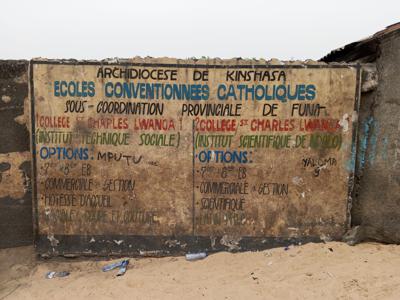 ARCHIDIOCESE DE KINSHASA
ECOLES CONVENTIONNEES CATHOLIQUES
SOUS-COORDINATION PROVINCIALE DE FUNA
COLLEGE ST CHARLES LWANGA 1
(INSTITUT TECHNIQUE SOCIALE)
OPTIONS: MPUTU
- 7e 8e EB
- COMMERCIALE & GESTION
- HOTESSE D'ACCUEIL
COUPE ET COUTURE
2 COLLEGE ST CHARLES LWANGA
(INSTITUT SCIENTIFIQUE DE
OPTIONS:
- 7e 8e EB
- COMMERCIALE & GESTION
- SCIENTIFIQUE